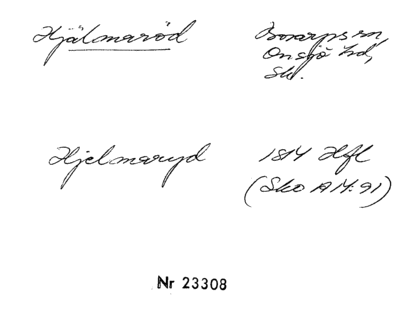 Hjälmaröd
Bosarps sn,
Onsjö hd,
Sk.
Hjelmaryd
1814 Hfl
(Sko A14:91)
Nr 23308